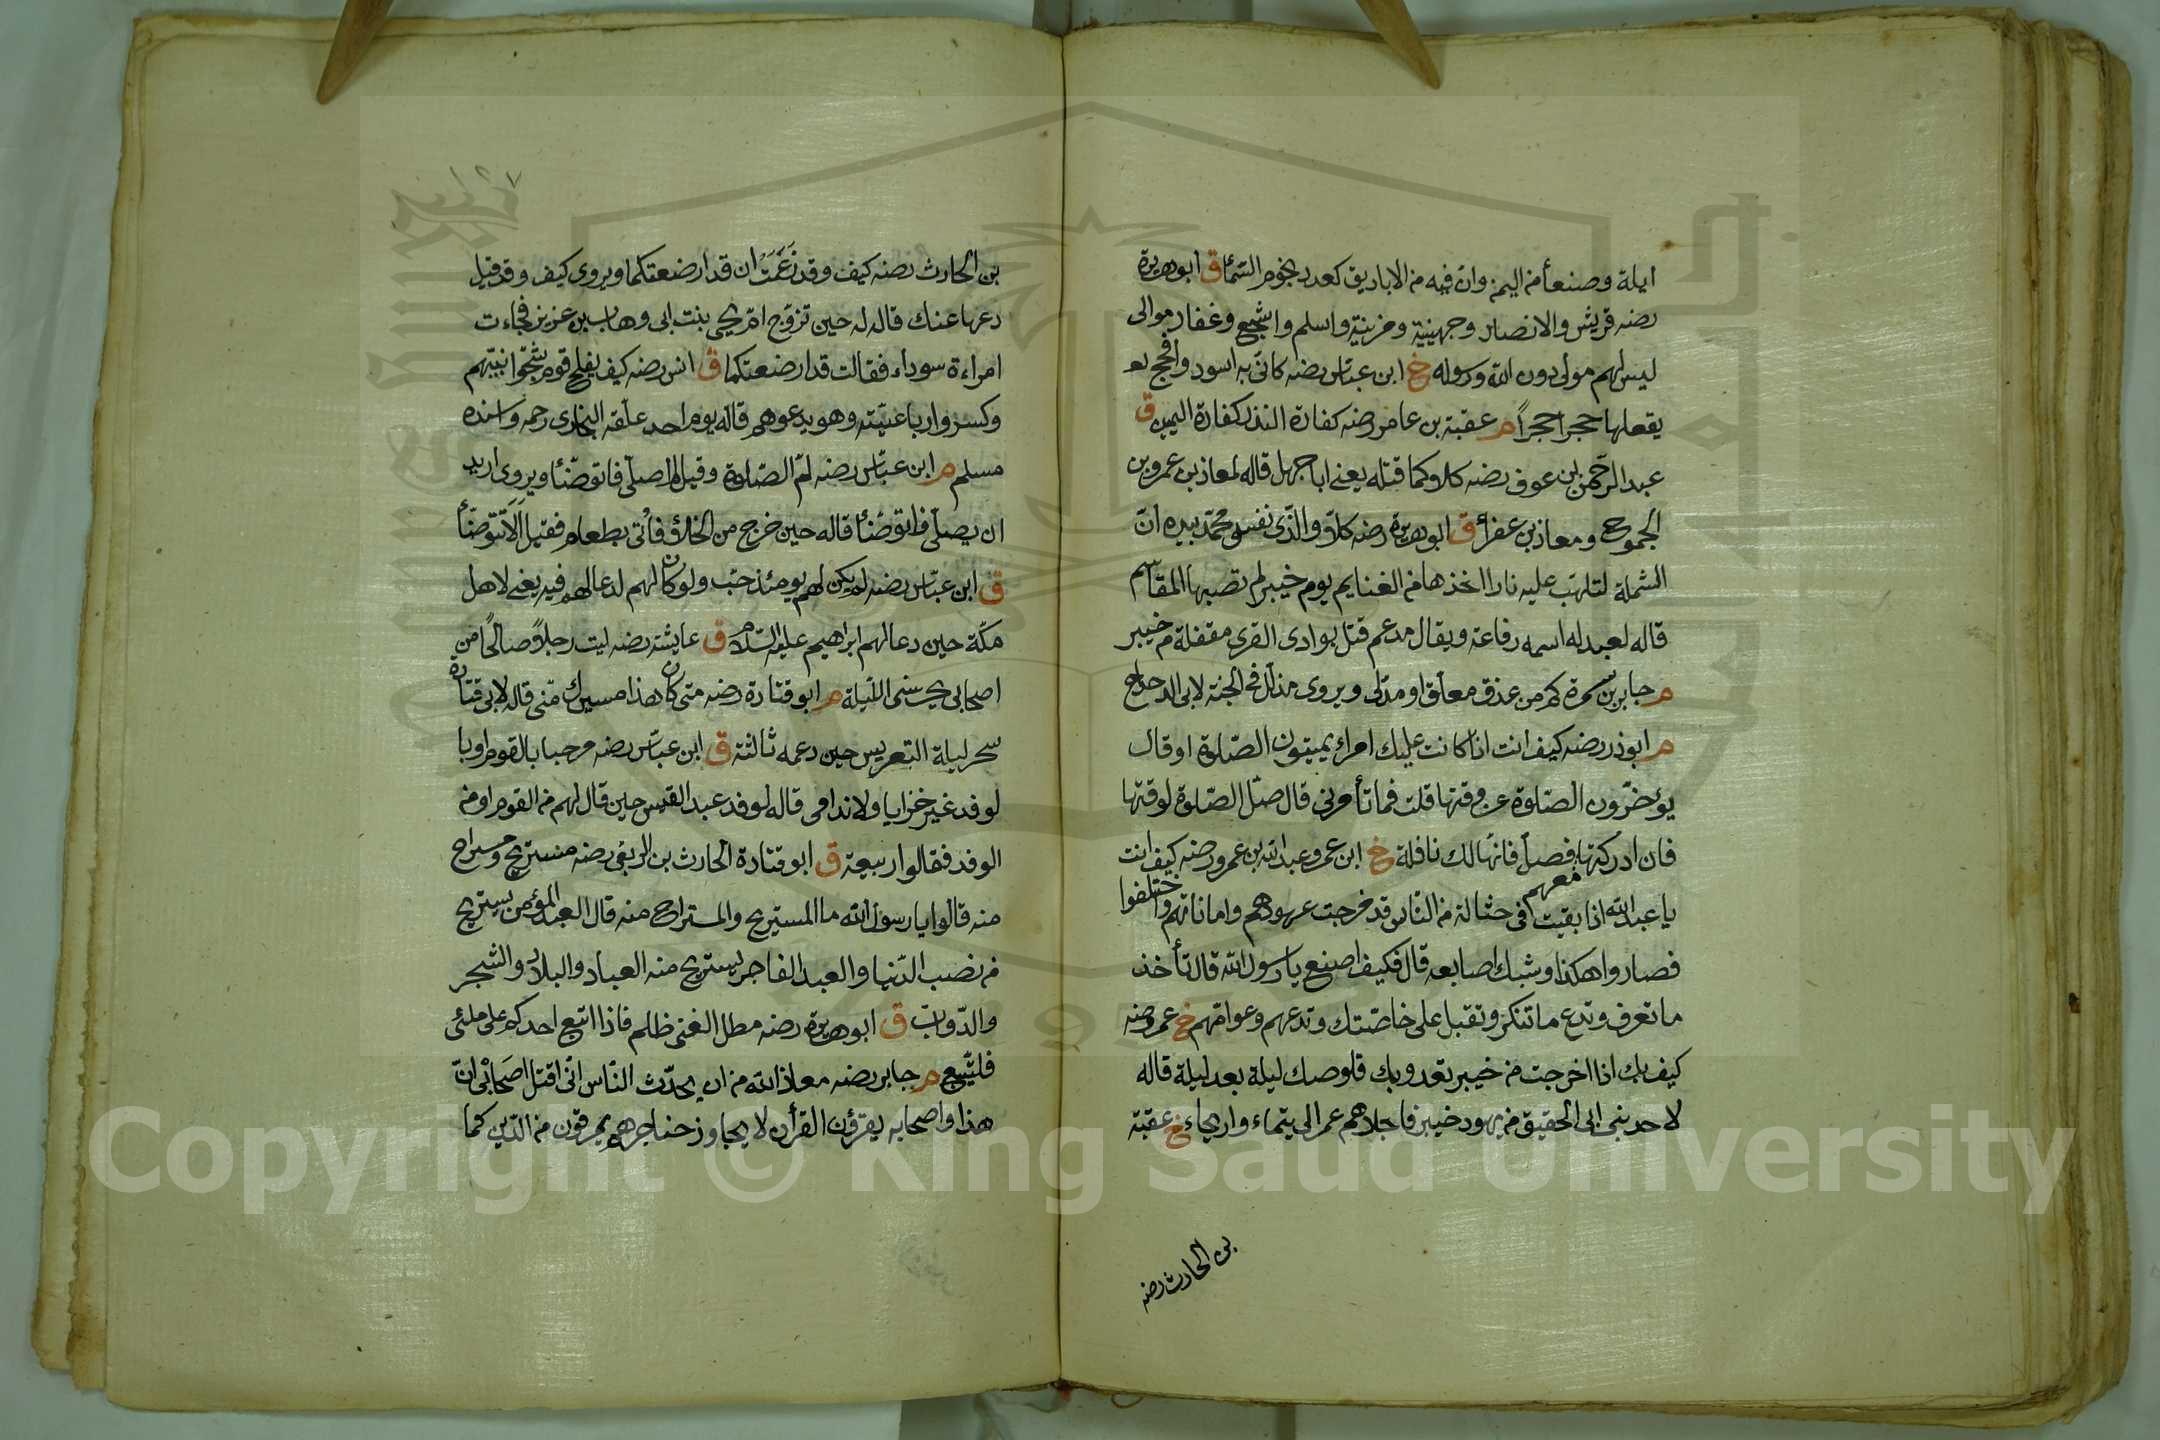 ايلة وصنعأ من اليمن وان فيه من الاباريق كعدد نجوم السمأ ق ابوهريرة
رضه قريش والانصار وجهينة ومزينة واسلم واشجع وغفار موالى
ليس لهم مولى دون الله ورسوله خ ابن عباس رضه كانّى به اسود وافحج
يقعلها حجرا حجراً م عقبة بن عامر رضه كفارة النذر كفارة اليمين ق
عبد الرحمن بن عوف رضه كلاوكما قتله يعنى اباجهل قاله لمعاذ بن عمرو بن
الجموح ومعاذ بن عفرأ ق ابوهريرة رضه كلا والذى نفس محمد بيده انّ
الشملة لتلهب عليه نارا اخذها من الغنايم يوم خيبر لم تصبها المقاسم
قاله لعبد له اسمه رفاعة ويقال مدعم قتل بوادى القرى مقفلة من خيبر
م جابر بن سمرة كم من عذق معلق او مدلى ويروى مذلل فى الجنة لابى الدحداح
م ابوذر رضه كيف انت اذا كانت عليك امراء يميتون الصلوة او قال
يؤخرون الصلوة عن وقتها قلت فما تأمرنى قال صل الصلوة لوقتها
فان ادركتها معهم فصل فانها لك نافلة خ ابن عمر وعبد الله بن عمرو رضه كيف انت
يا عبد الله اذا بقيت فى حثالة من الناس قد مرجت عهودهم واماناتهم واختلفوا
فصاروا هكذا وشبك اصابعه قال فكيف اصنع يا رسول الله قال تأخذ
ما تعرف وتدع ما تنكر وتقبل على خاصتك وتدعهم وعوامهم خ عمر رضه
كيف بك اذا اخرجت من خيبر تعدو بك قلوصك ليلة بعد ليلة قاله
لاحد بنى ابى الحقيق من يهود خيبر فاجلاهم عمر الى يتماء واريحاء خ عقبة
بن الحارث رضه
بن الحارث رضه كيف وقد زَعَمَتْ ان قد ارضعتكما ويروى كيف وقد قيل
دعها عنك قاله له حين تزوج ام يحى بنت ابى وهاب بن عزيز فجاءت
امراءة سوداء فقالت قد ارضعتكما ق انس رضه كيف يفلح قوم شجّوا نبيّهم
وكسروا رباعيّته وهو يدعوهم قاله يوم احد علّقه البخارى رحمه واسنده
مسلم م ابن عبّاس رضه لمّ الصّلوة وقيل لِمَ اصلى فاتوضّأ ويروى اريد
ان يصلّى فاتوضّأ قاله حين خرج من الخلاء فأتى بطعام فقيل اَلَا تتوضّأ
ق ابن عبّاس رضه لم يكن لهم يومئذ حبّ ولو كان لهم لدعا لهم فيه يعنى لاهل
مكّة حين دعا لهم ابراهيم عليه السّلام ق عايشة رضه ليت رجلاً صالحًا من
اصحابى يحرسنى الليلة م ابوقتادة رضه متى كان هذا مسيرك منّى قاله لابى قتادة
سحر ليلة التعريس حين دعمه ثالثة ق ابن عبّاس رضه مرحبا بالقوم او با
لوفد غير خزايا ولا ندامى قاله لوفد عبد القيس حين قال لهم من القوم او من
الوفد فقالوا ربيعة ق ابوقتادة الحارث بن الربعى رضه مستريح ومستراح
منه قالوا يا رسول الله ما المستريح والمستراح منه قال العبد المؤمن يستريح
من نصب الدّنيا والعبد الفاجر يستريح منه العباد والبلاد والشجر
والدّوابّ ق ابوهريرة رضه مطل الغنى ظلم فاذا اتبع احدكم على ملئى
فليتّبع م جابر رضه معاذ الله من ان يحدّث النّاس انّى اقتل اصحابى انّ
هذا واصحابه يقرؤن القرأن لا يجاوز حناجرهم يمرقون من الدّين كما
Copyright © King Saud University